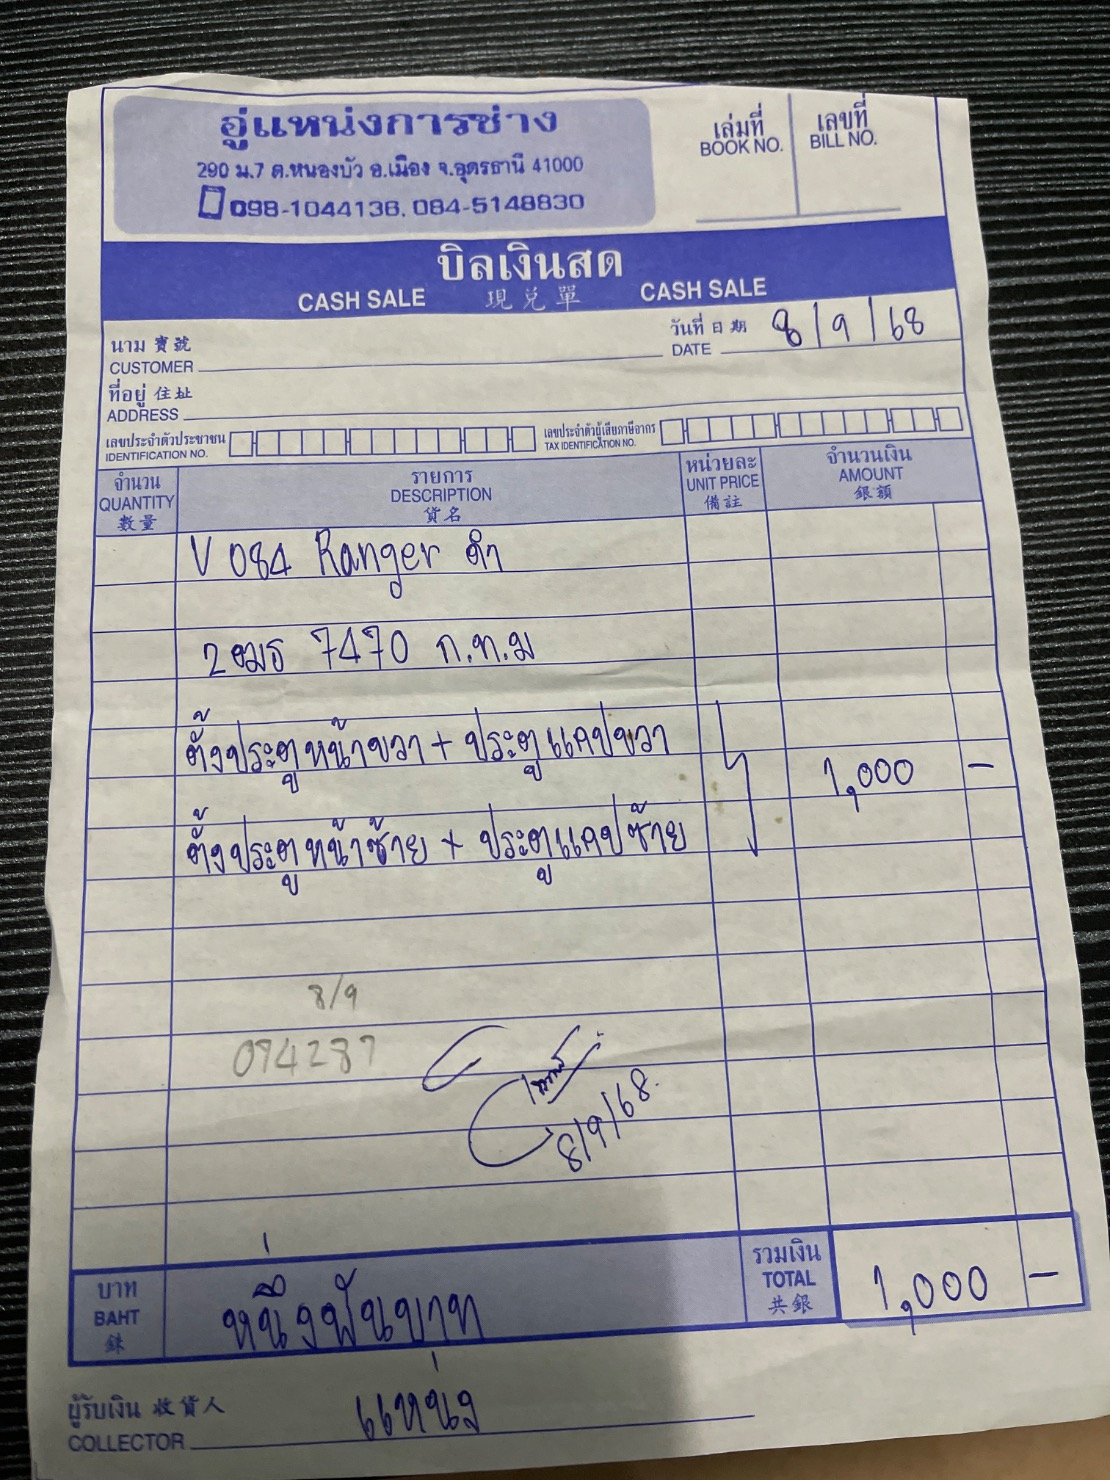 อู่แหน่งการช่าง
290 ม.7 ต.หนองบัว อ.เมือง จ.อุดรธานี 41000
098-1044136, 084-5148830
เล่มที่
BOOK NO.
เลขที่
BILL NO.
บิลเงินสด
CASH SALE 現兌單 CASH SALE
นาม 寶號
CUSTOMER
วันที่ 日期 8/9/68
DATE
ที่อยู่ 住址
ADDRESS
เลขประจำตัวประชาชน
IDENTIFICATION NO.
เลขประจำตัวผู้เสียภาษีอากร
TAX IDENTIFICATION NO.
จำนวน
QUANTITY
數量
รายการ
DESCRIPTION
貨名
หน่วยละ
UNIT PRICE
備註
จำนวนเงิน
AMOUNT
銀額
V 084 Ranger ดำ
2ฒธ 7470 ก.ท.ม
ตั้งประตูหน้าขวา + ประตูแคปขวา
1,000 -
ตั้งประตูหน้าซ้าย + ประตูแคปซ้าย
8/9
074287
8/9/68.
บาท
BAHT
銖
หนึ่งพันบาท
รวมเงิน
TOTAL
共銀
1,000 -
ผู้รับเงิน 收貨人
COLLECTOR
แหน่ง